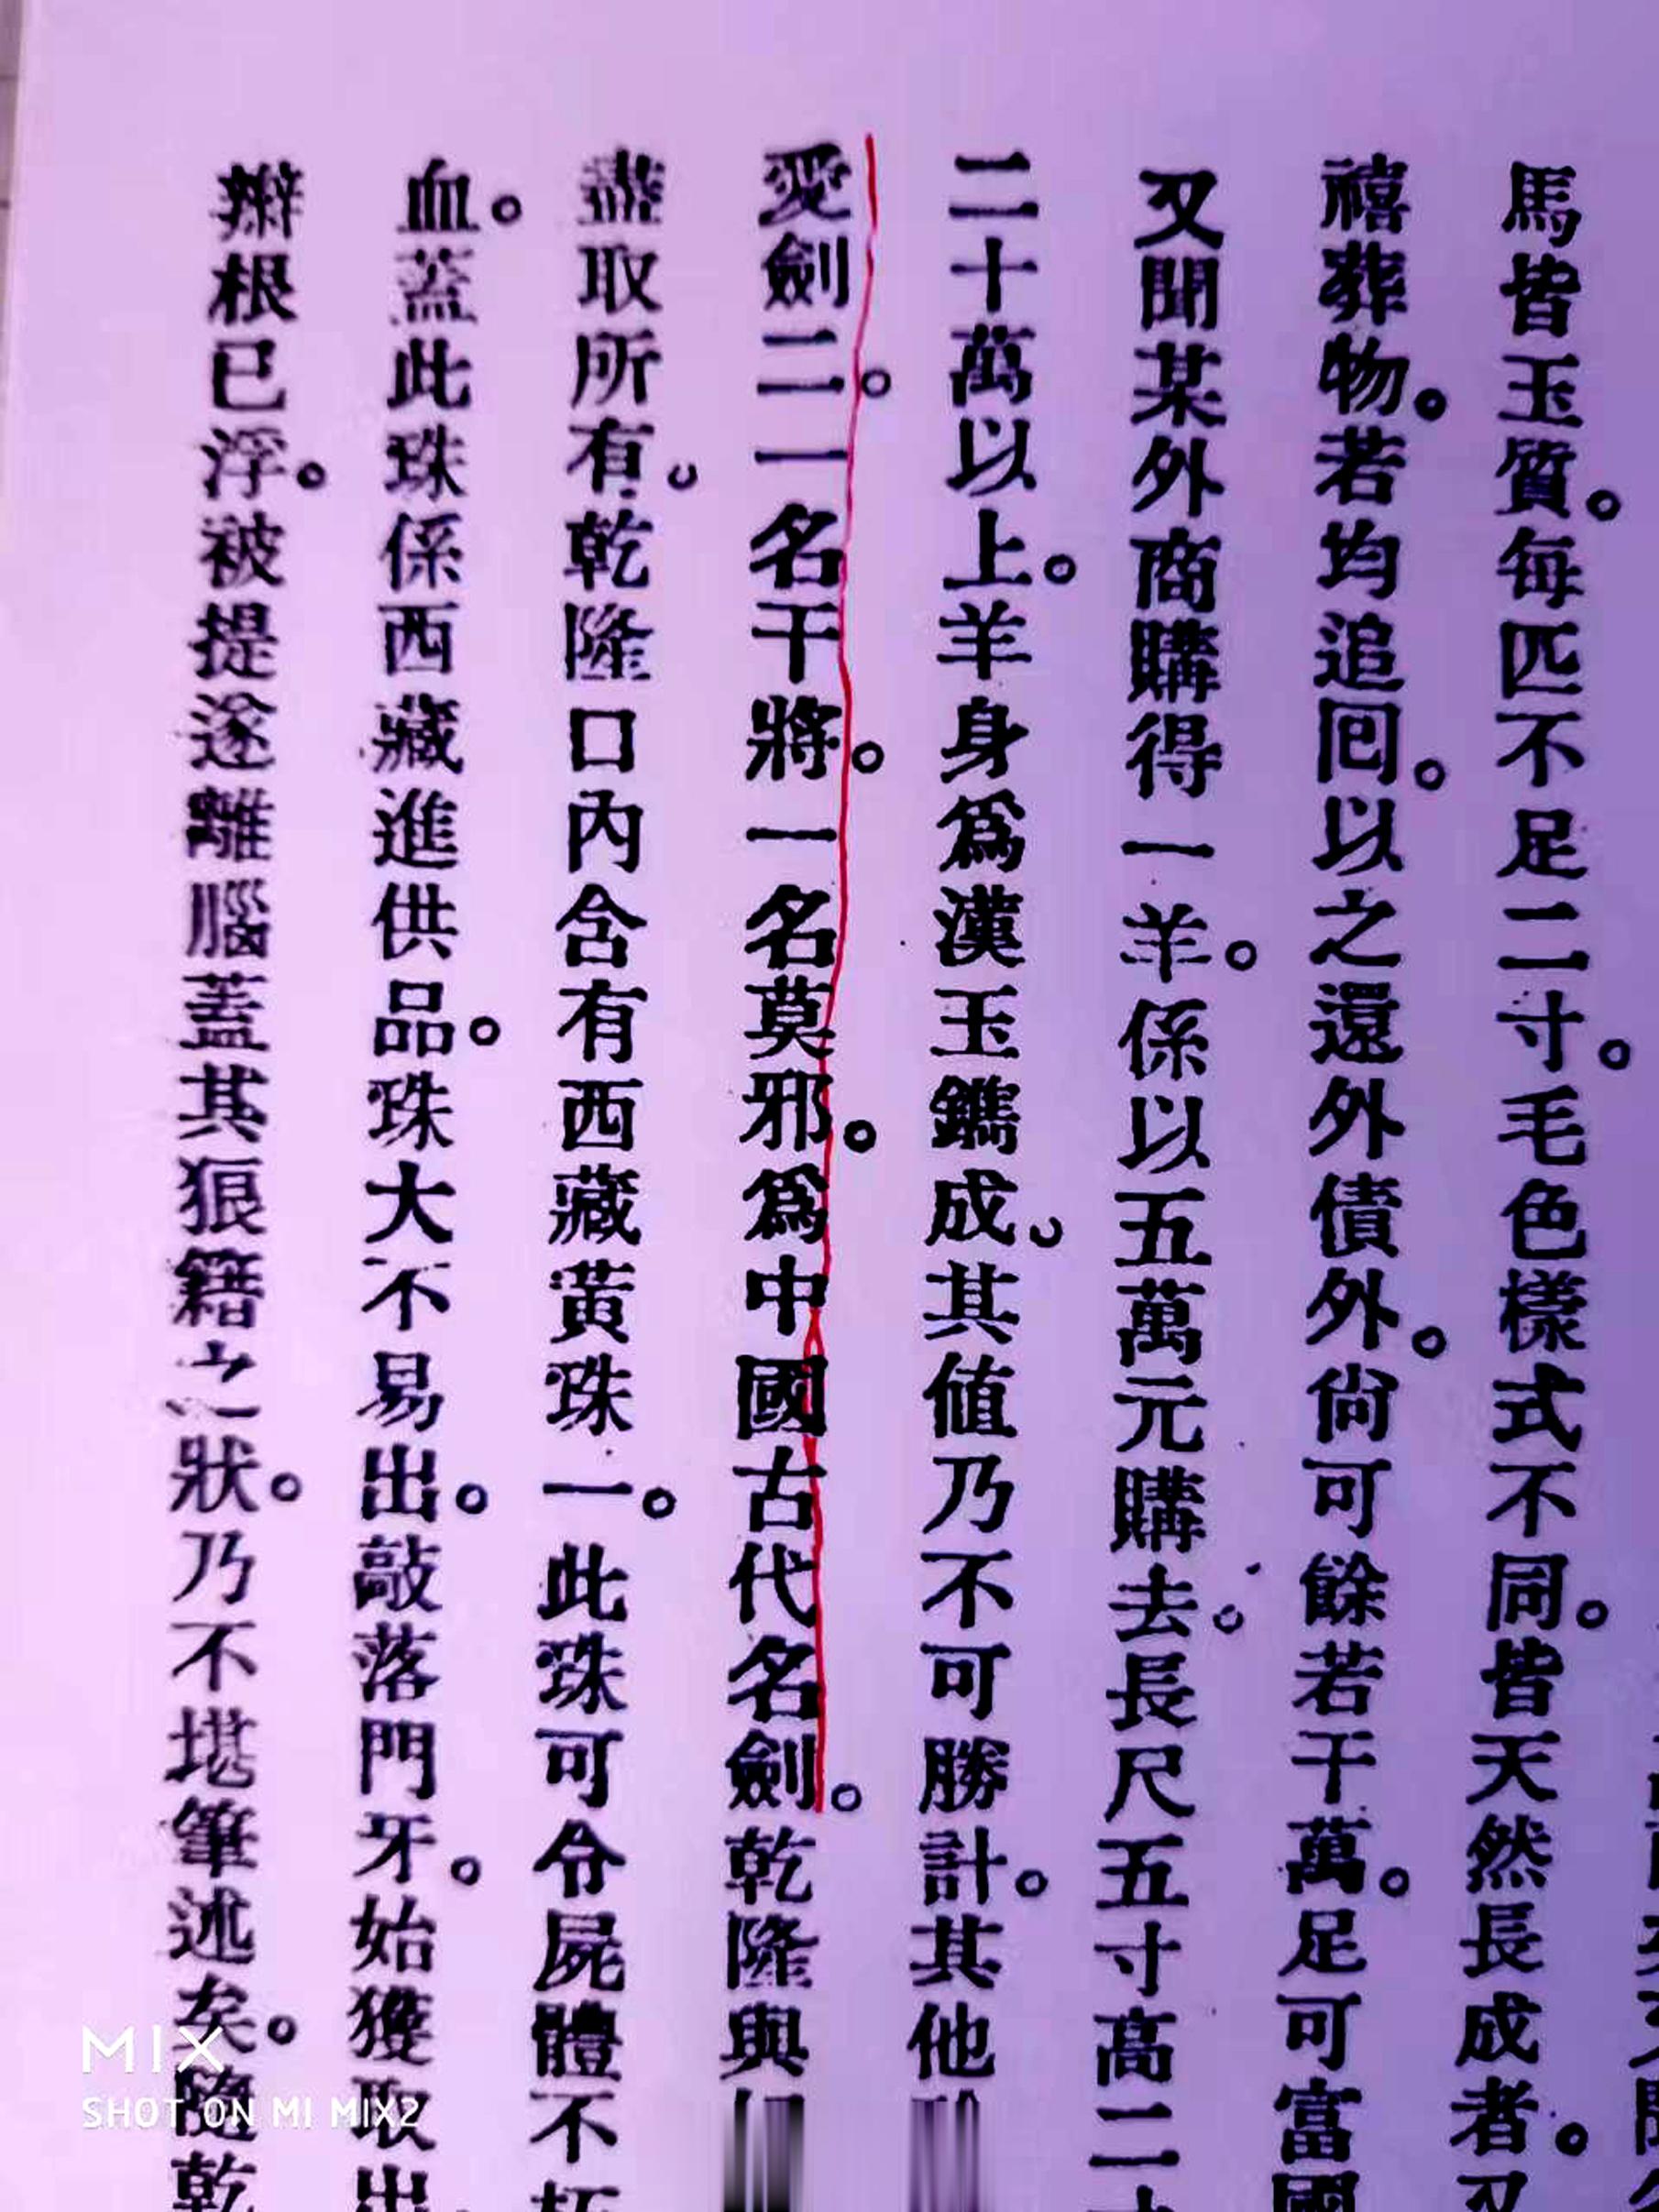 馬皆玉質。每匹不足二寸。毛色樣式不同。皆天然長成者。又
禧葬物。若均追回。以之還外債外。尙可餘若干萬。足可富國
又聞某外商購得一羊。係以五萬元購去。長尺五寸高二寸
二十萬以上。羊身爲漢玉鐫成。其值乃不可勝計。其他
愛劍二。一名干將。一名莫邪。爲中國古代名劍。乾隆與
盡取所有。乾隆口內含有西藏黃珠一。此珠可令屍體不朽
血。蓋此珠係西藏進供品。珠大不易出。敲落門牙。始獲取出
辮根已浮。被提遂離腦蓋其狼籍之狀。乃不堪筆述矣。隨乾
MIX
SHOT ON MI MIX2